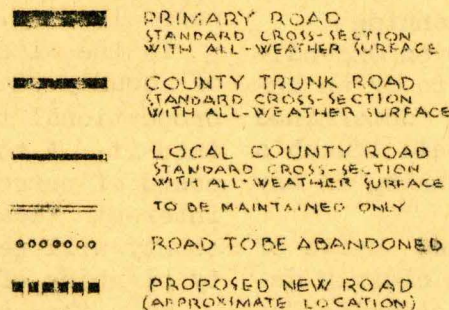 PRIMARY ROAD
STANDARD CROSS-SECTION
WITH ALL-WEATHER SURFACE
COUNTY TRUNK ROAD
STANDARD CROSS-SECTION
WITH ALL-WEATHER SURFACE
LOCAL COUNTY ROAD
STANDARD CROSS-SECTION
WITH ALL-WEATHER SURFACE
TO BE MAINTAINED ONLY
ROAD TO BE ABANDONED
PROPOSED NEW ROAD
(APPROXIMATE LOCATION)